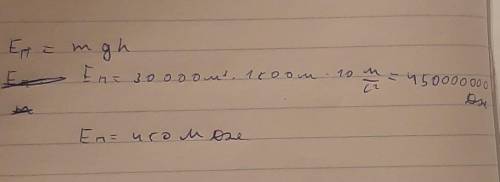 Eп = mgh
Eп = 30000м³ · 1500м · 10 м/с² = 450000000 Дж
Eп = 450 М Дж